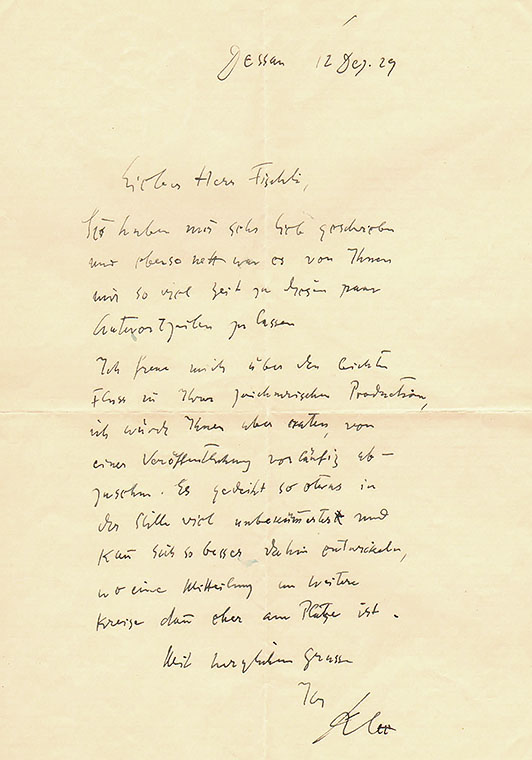 Dessau 12 Dez. 29
Lieber Herr Fischli,
Sie haben mir sehr lieb geschrieben
und ebenso nett war es von Ihnen
mir so viel Zeit zu diesen paar
Antwortzeilen zu lassen
Ich freue mich über den leichten
Fluss in Ihrer zeichnerischen Production,
ich würde Ihnen aber raten, von
einer Veröffentlichung vorläufig ab-
zusehn. Es gedeiht so etwas in
der Stille viel unbekümmerter und
kann sich so besser dahin entwickeln,
wo eine Mitteilung an weitere
Kreise dann eher am Platze ist.
Mit herzlichem Gruss
Ihr
Klee